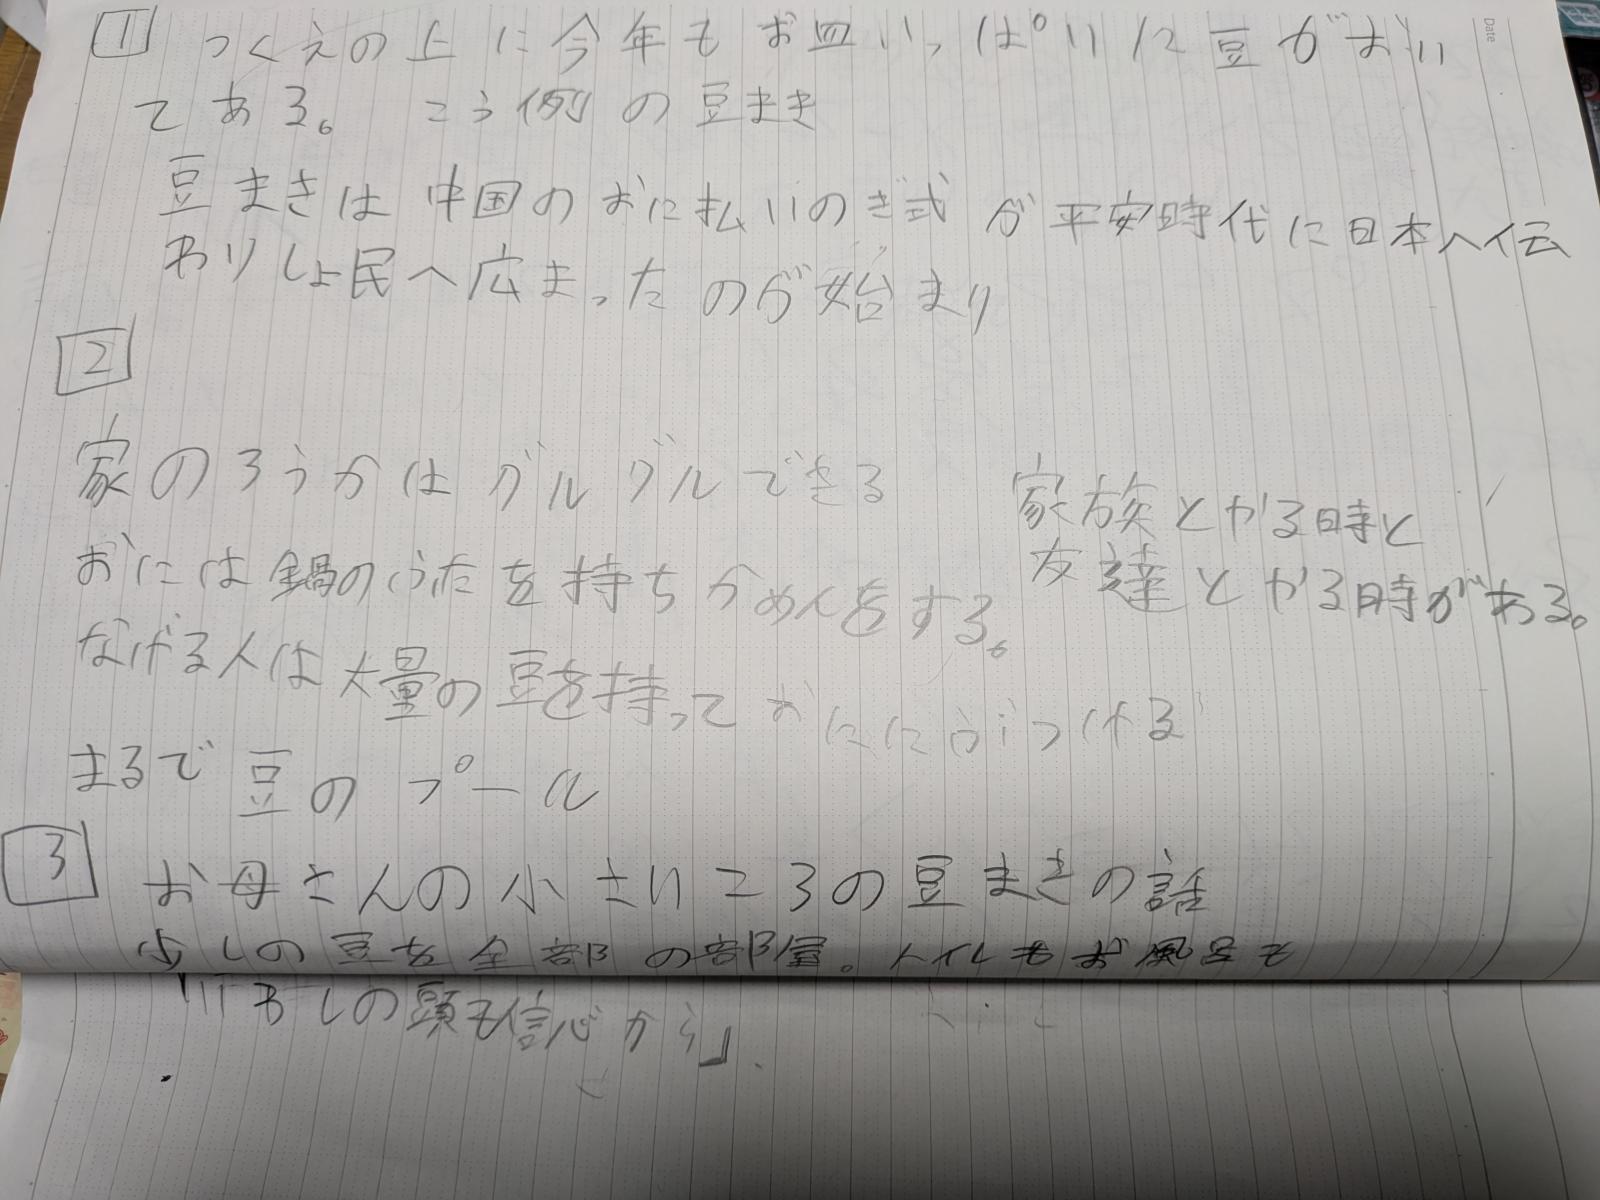 1 つくえの上に今年もお皿いっぱいに豆がおい
てある。 こう例の豆まき
豆まきは中国のおに払いのぎ式が平安時代に日本へ伝
わりしょ民へ広まったのが始まり
2
家のろうかはグルグルできる
家族とやる時と
友達とやる時がある。
おには鍋のふたを持ちかめんをする。
なげる人は大量の豆を持っておににぶつける
まるで豆のプール
3 お母さんの小さいころの豆まきの話
少しの豆を全部の部屋。トイレもお風呂も
「いわしの頭も信心から」
Date